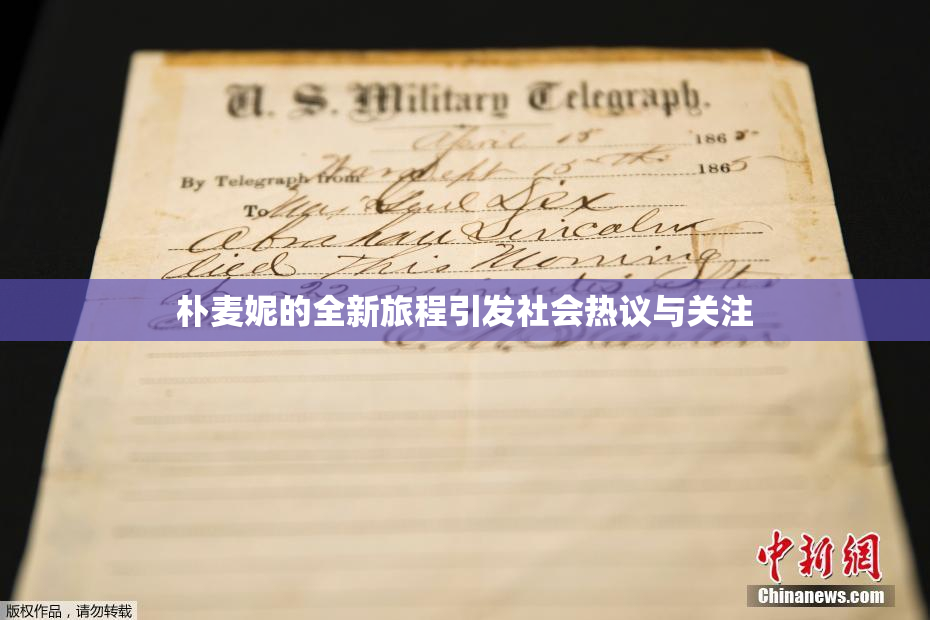 U. S. Military Telegraph.
April 15 1865
By Telegraph from War Dept 15th 1865
To Maj Genl Dix
Abraham Lincoln
died This Morning
at 22 minutes after
朴麦妮的全新旅程引发社会热议与关注
E. M. Stanton
中新网
Chinanews.com
版权作品，请勿转载